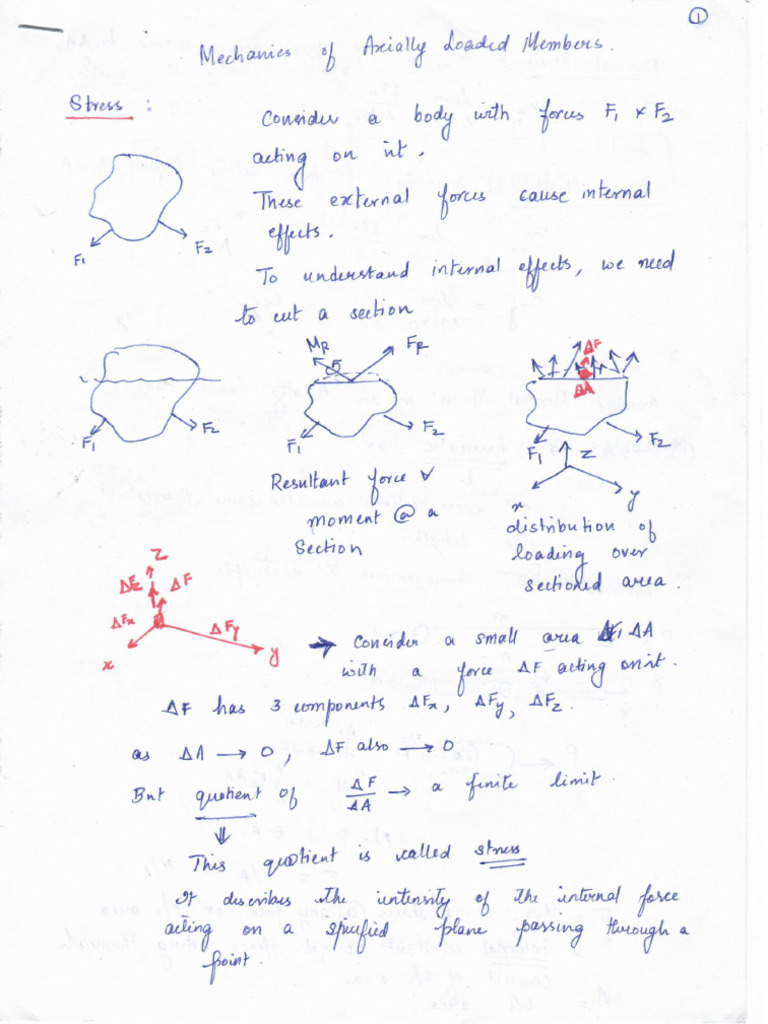 1
Mechanics of Axially Loaded Members.
Stress :
Consider a body with forces F1 & F2
acting on it.
These external forces cause internal
effects.
F1
F2
To understand internal effects, we need
to cut a section
F1
F2
MR
FR
F1
F2
ΔF
ΔA
F1
F2
z
x
y
Resultant force &
moment @ a
Section
distribution of
loading over
sectioned area.
z
ΔFz
ΔF
ΔFx
ΔFy
x
y
→ Consider a small area ΔA
with a force ΔF acting on it.
ΔF has 3 components ΔFx, ΔFy, ΔFz.
as ΔA → 0, ΔF also → 0
But quotient of ΔF/ΔA → a finite limit.
⇓
This quotient is called stress
It describes the intensity of the internal force
acting on a specified plane passing through a
point.